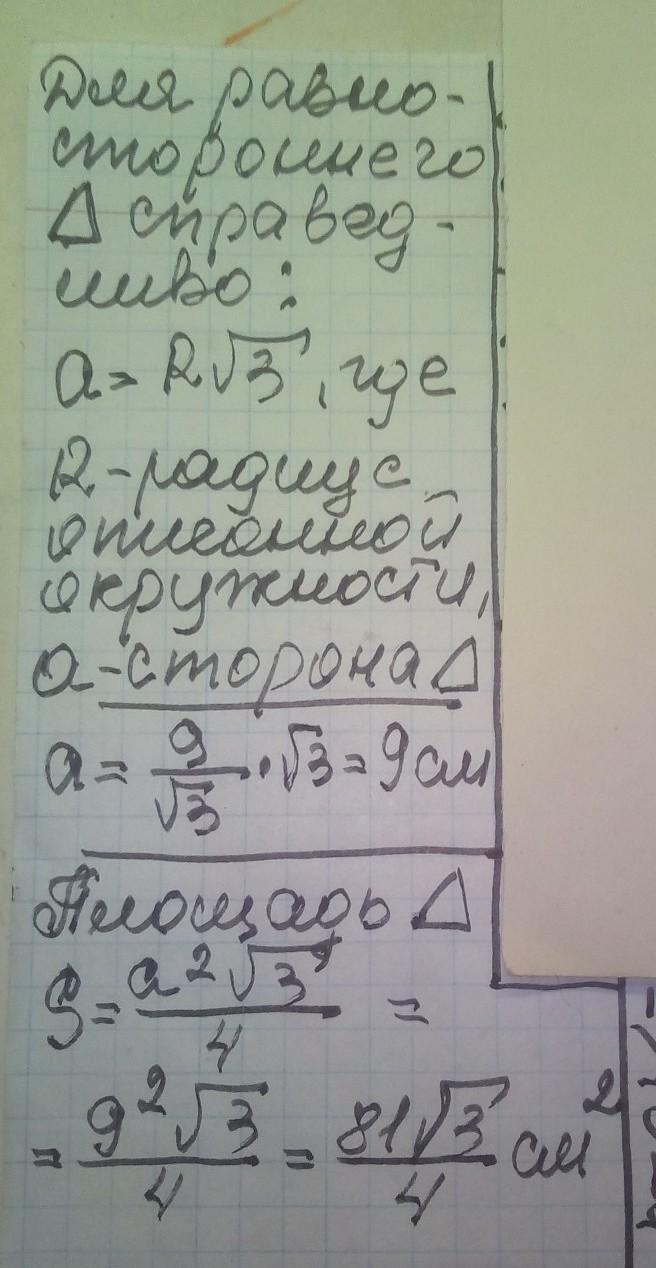 Для равно-
стороннего
Δ справед-
ливо:
a = R√3, где
R - радиус
описанной
окружности,
a - сторона Δ
a = 9/√3 · √3 = 9 см
Площадь Δ
S = a²√3/4 =
= 9²√3/4 = 81√3/4 см²